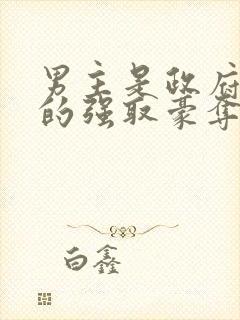 男主是政府
的强取豪夺
白鑫